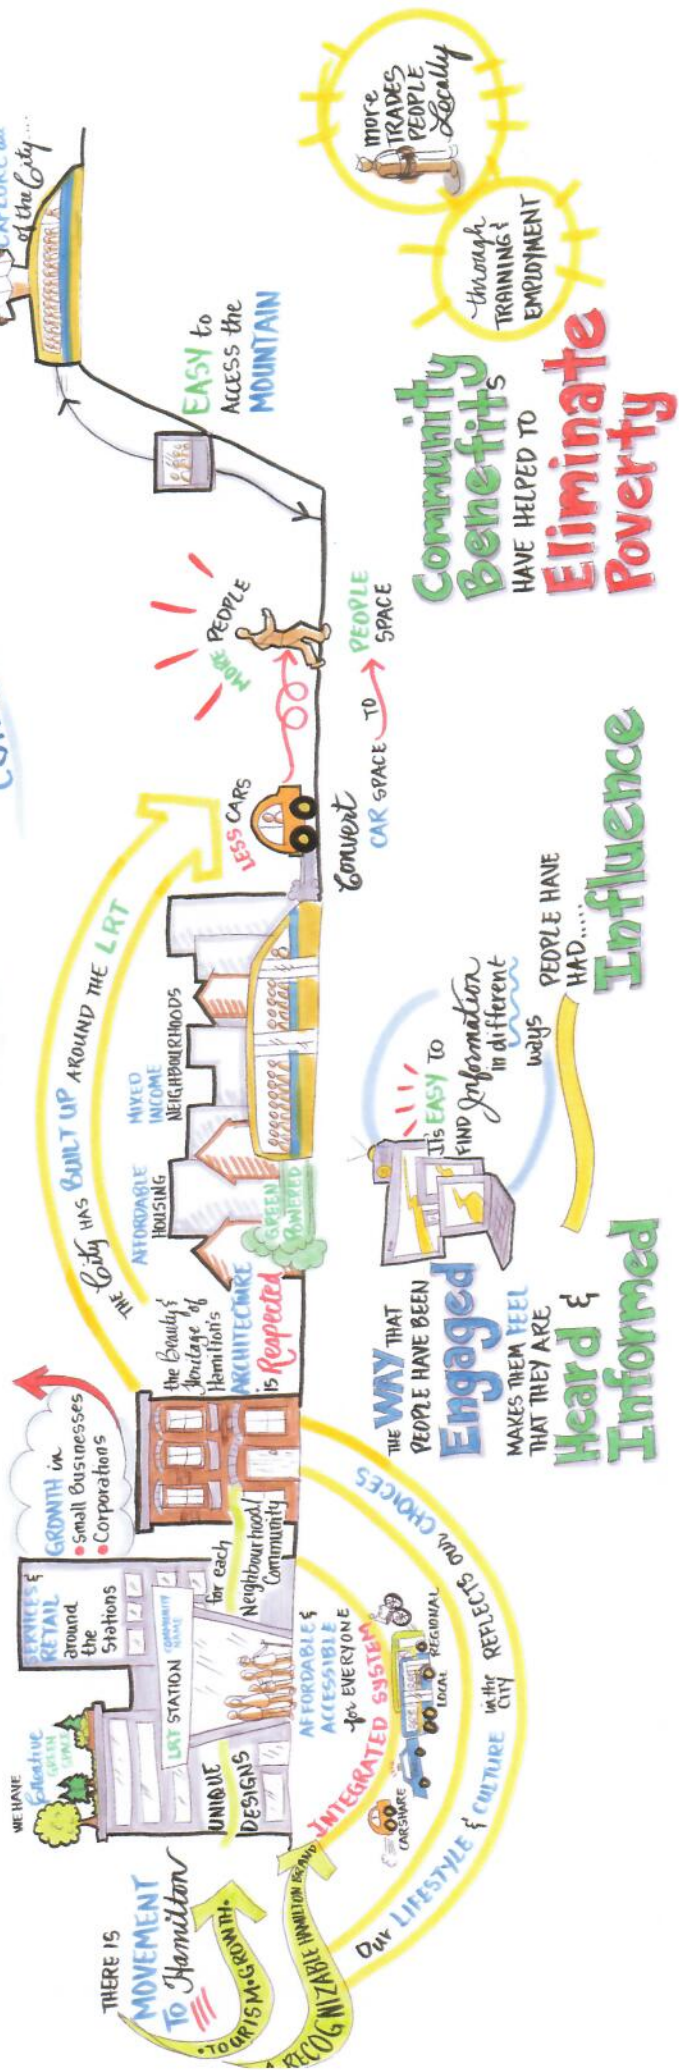 THERE IS
MOVEMENT
TO Hamilton
• TOURISM • GROWTH •
RECOGNIZABLE HAMILTON BRAND
WE HAVE
Creative
GREEN
SPACE
SERVICES &
RETAIL
around
the
Stations
GROWTH in
• Small Businesses
• Corporations
LRT STATION
COMMUNITY
NAME
UNIQUE
DESIGNS
for each
Neighbourhood/
Community
AFFORDABLE &
ACCESSIBLE
for EVERYONE
INTEGRATED SYSTEM
CARSHARE
LOCAL
REGIONAL
Our LIFESTYLE & CULTURE in the CITY REFLECTS OUR CHOICES
the Beauty &
Heritage of
Hamilton's
ARCHITECTURE
is Respected
THE City HAS BUILT UP AROUND THE LRT
AFFORDABLE
HOUSING
MIXED
INCOME
NEIGHBOURHOODS
GREEN
POWERED
LESS CARS
MORE PEOPLE
Convert
CAR SPACE TO PEOPLE
SPACE
EASY to
ACCESS the
MOUNTAIN
EXPLORE
of the City....
THE WAY THAT
PEOPLE HAVE BEEN
Engaged
MAKES THEM FEEL
THAT THEY ARE
Heard &
Informed
It's EASY TO
FIND Information
in different
ways
PEOPLE HAVE
HAD.....
Influence
Community
Benefits
HAVE HELPED TO
Eliminate
Poverty
through
TRAINING &
EMPLOYMENT
more
TRADES
PEOPLE
Locally